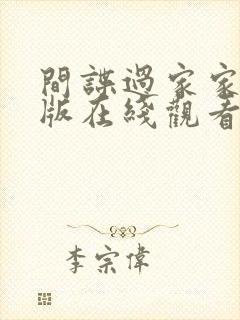 間諜過家家
版在綫觀看
李宗偉